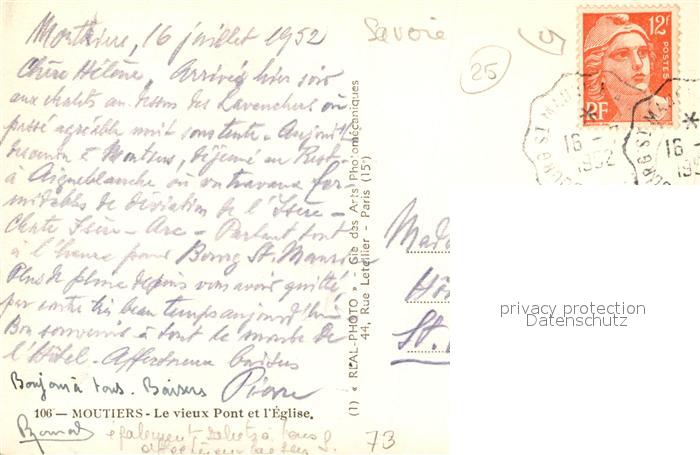 16 juillet 1952
Savoie
25
12F
POSTES
RF
16 -
1952
Chère Hélène, Arrivés hier soir
aux chalets au dessus des Lavanchers où
passé agréable nuit sous tente - Aujourd'
déjeuné au Rest.
à Aigueblanche où on travaux for-
midables de déviation de l'Isère -
Chute Isère - Arc - Partant tout
à l'heure pour Bourg St. Maurice
Plus de pluie depuis vous avoir quitté
par contre très beau temps aujourd'hui
Bon souvenir à tout le monde de
l'Hôtel - Affectueux baisers
Bonjour à tous. Baisers Pierre
106 — MOUTIERS - Le vieux Pont et l'Église.
également à tous
73
(1) « REAL-PHOTO » Cie des Arts Photomécaniques
44, Rue Letellier - Paris (15e)
Mada
Hô
St.
privacy protection
Datenschutz